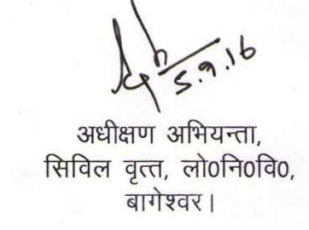 5.9.16
अधीक्षण अभियन्ता,
सिविल वृत्त, लो0नि0वि0,
बागेश्वर।